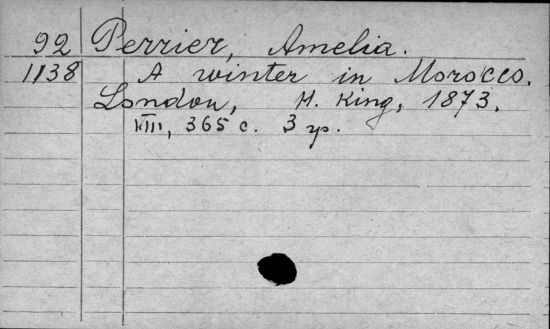 92 Perrier, Amelia.
1138 A winter in Morocco.
London, H. King, 1873.
VIII, 365 c. 3 гр.